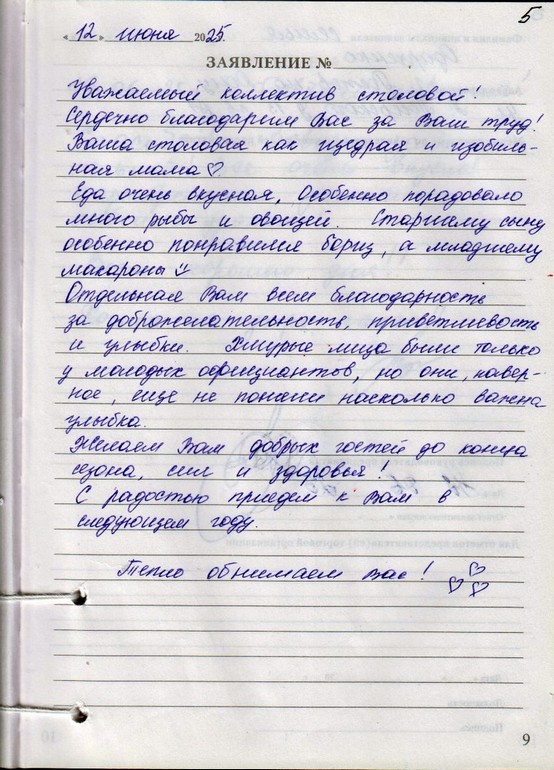 5
« 12 » июня 2025.
ЗАЯВЛЕНИЕ №
Уважаемый коллектив столовой!
Сердечно благодарим Вас за Ваш труд!
Ваша столовая как щедрая и изобиль-
ная мама ♡
Еда очень вкусная, Особенно порадовало
много рыбы и овощей. Старшему сыну
особенно понравился борщ, а младшему
макароны ☺
Отдельная Вам всем благодарность
за доброжелательность, приветливость
и улыбки. Хмурые лица были только
у молодых официантов, но они, навер-
ное, еще не поняли насколько важна
улыбка.
Желаем Вам добрых гостей до конца
сезона, сил и здоровья!
С радостью приедем к Вам в
следующем году.
Тепло обнимаем Вас! ♡♡♡
9